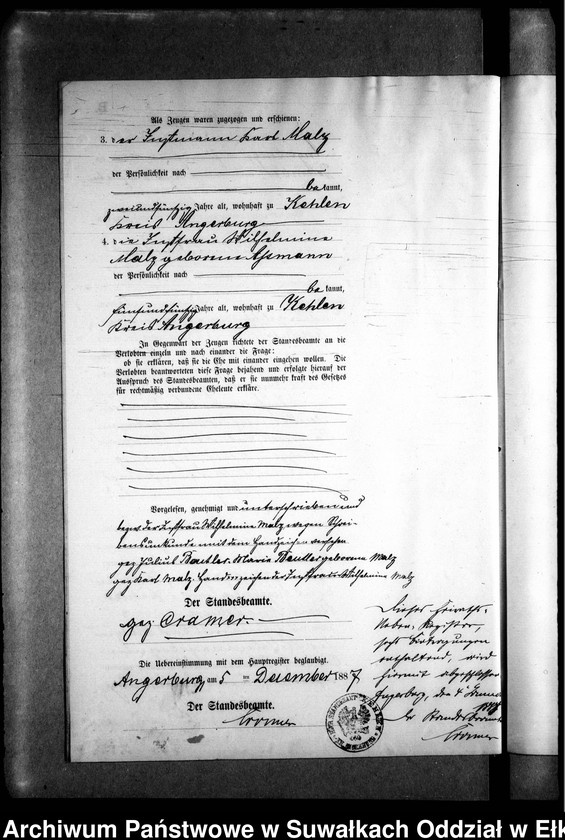 Als Zeugen waren zugezogen und erschienen:
3. der Instmann Karl Malz
der Persönlichkeit nach
be kannt,
zweiundfünfzig Jahre alt, wohnhaft zu Kehlen
Kreis Angerburg
4. die Instfrau Wilhelmine
Malz geborene Assmann
der Persönlichkeit nach
be kannt,
fünfundfünfzig Jahre alt, wohnhaft zu Kehlen
Kreis Angerburg
In Gegenwart der Zeugen richtete der Standesbeamte an die
Verlobten einzeln und nach einander die Frage:
ob sie erklären, daß sie die Ehe mit einander eingehen wollen. Die
Verlobten beantworteten diese Frage bejahend und erfolgte hierauf der
Ausspruch des Standesbeamten, daß er sie nunmehr kraft des Gesetzes
für rechtmäßig verbundene Eheleute erkläre.
Vorgelesen, genehmigt und unterschrieben und
bezw. der Instfrau Wilhelmine Malz wegen Schrei-
bensunkunde mit dem Handzeichen versehen
gez. Julius Beutler. Maria Beutler geborene Malz
gez. Karl Malz. Handzeichen der Instfrau Wilhelmine Malz
Der Standesbeamte.
gez. Cramer
Die Uebereinstimmung mit dem Hauptregister beglaubigt.
Angerburg, am 5 ten Dezember 1887
Der Standesbeamte.
Cramer
Dieses Heiraths-
Neben-Register,
Eintragungen
enthaltend, wird
hiermit abgeschlossen
Angerburg, den
Der Standesbeamte
Cramer
Archiwum Państwowe w Suwałkach Oddział w Ełk